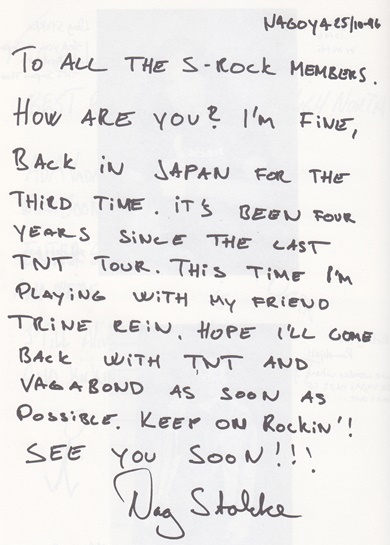 NAGOYA 25/10-96
TO ALL THE S-ROCK MEMBERS.
HOW ARE YOU? I'M FINE,
BACK IN JAPAN FOR THE
THIRD TIME. IT'S BEEN FOUR
YEARS SINCE THE LAST
TNT TOUR. THIS TIME I'M
PLAYING WITH MY FRIEND
TRINE REIN. HOPE I'LL COME
BACK WITH TNT AND
VAGABOND AS SOON AS
POSSIBLE. KEEP ON ROCKIN'!
SEE YOU SOON!!!
Dag Stokke